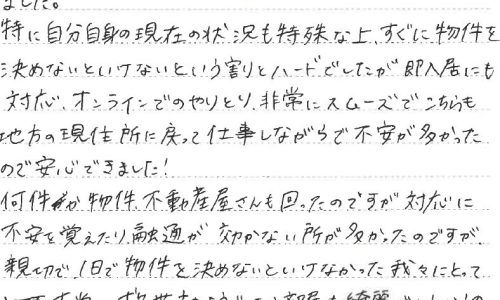 ました。
特に自分自身の現在の状況も特殊な上、すぐに物件を
決めないといけないという割りとハードでしたが即入居にも
対応、オンラインでのやりとり、非常にスムーズでこちらも
地方の現住所に戻って仕事しながらで不安が多かった
ので安心できました!
何件か物件、不動産屋さんも回ったのですが対応に
不安を覚えたり、融通が効かない所が多かったのですが、
親切で、1日で物件を決めないといけなかった我々にとって